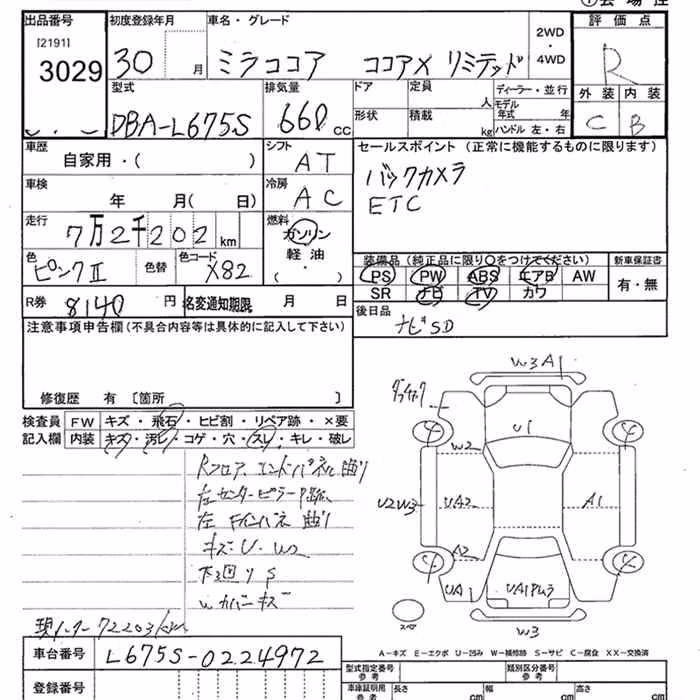 出品番号 初度登録年月 車名・グレード 2WD ・ 4WD 評価点
[2191]
3029 30 月 ミラココア ココアX リミテッド R
型式 排気量 ドア 定員 人 ディーラー・並行 外装 内装
DBA-L675S 660 cc 形状 積載 kg モデル年式 年 ハンドル 左・右 C B
車歴 自家用・( ) シフト AT セールスポイント (正常に機能するものに限ります)
車検 年 月( 日) 冷房 AC バックカメラ
ETC
走行 7万2千202 km 燃料 ガソリン 軽油 ( ・ )
色 ピンクII 色替 色コード X82
装備品 (純正品に限り○をつけてください) 新車保証書
PS PW ABS エアB AW 有・無
SR ナビ TV カワ
R券 8140 円 名変通知期限 月 日 後日品
ナビSD
注意事項申告欄(不具合内容等は具体的に記入して下さい)
修復歴 有 [箇所 ]
検査員 FW キズ・飛石・ヒビ割・リペア跡・×要
記入欄 内装 キズ・汚レ・コゲ・穴・スレ・キレ・破レ
Rフロア エンドパネル曲り
左センターピラー
左 Fインパネ 曲り
キズ・U・W2
下回りS
Wカバーキズ
W3 A1
U1
W2
U2W3 UA2 A1
A2
UA1
W3
スペア
A-キズ E-エクボ U-凹み W-補修跡 S-サビ C-腐食 XX-交換済
車台番号 L675S-0224972
登録番号
型式指定番号 参考 類別区分番号 参考
車庫証明用 参考 長さ cm 幅 cm 高さ cm